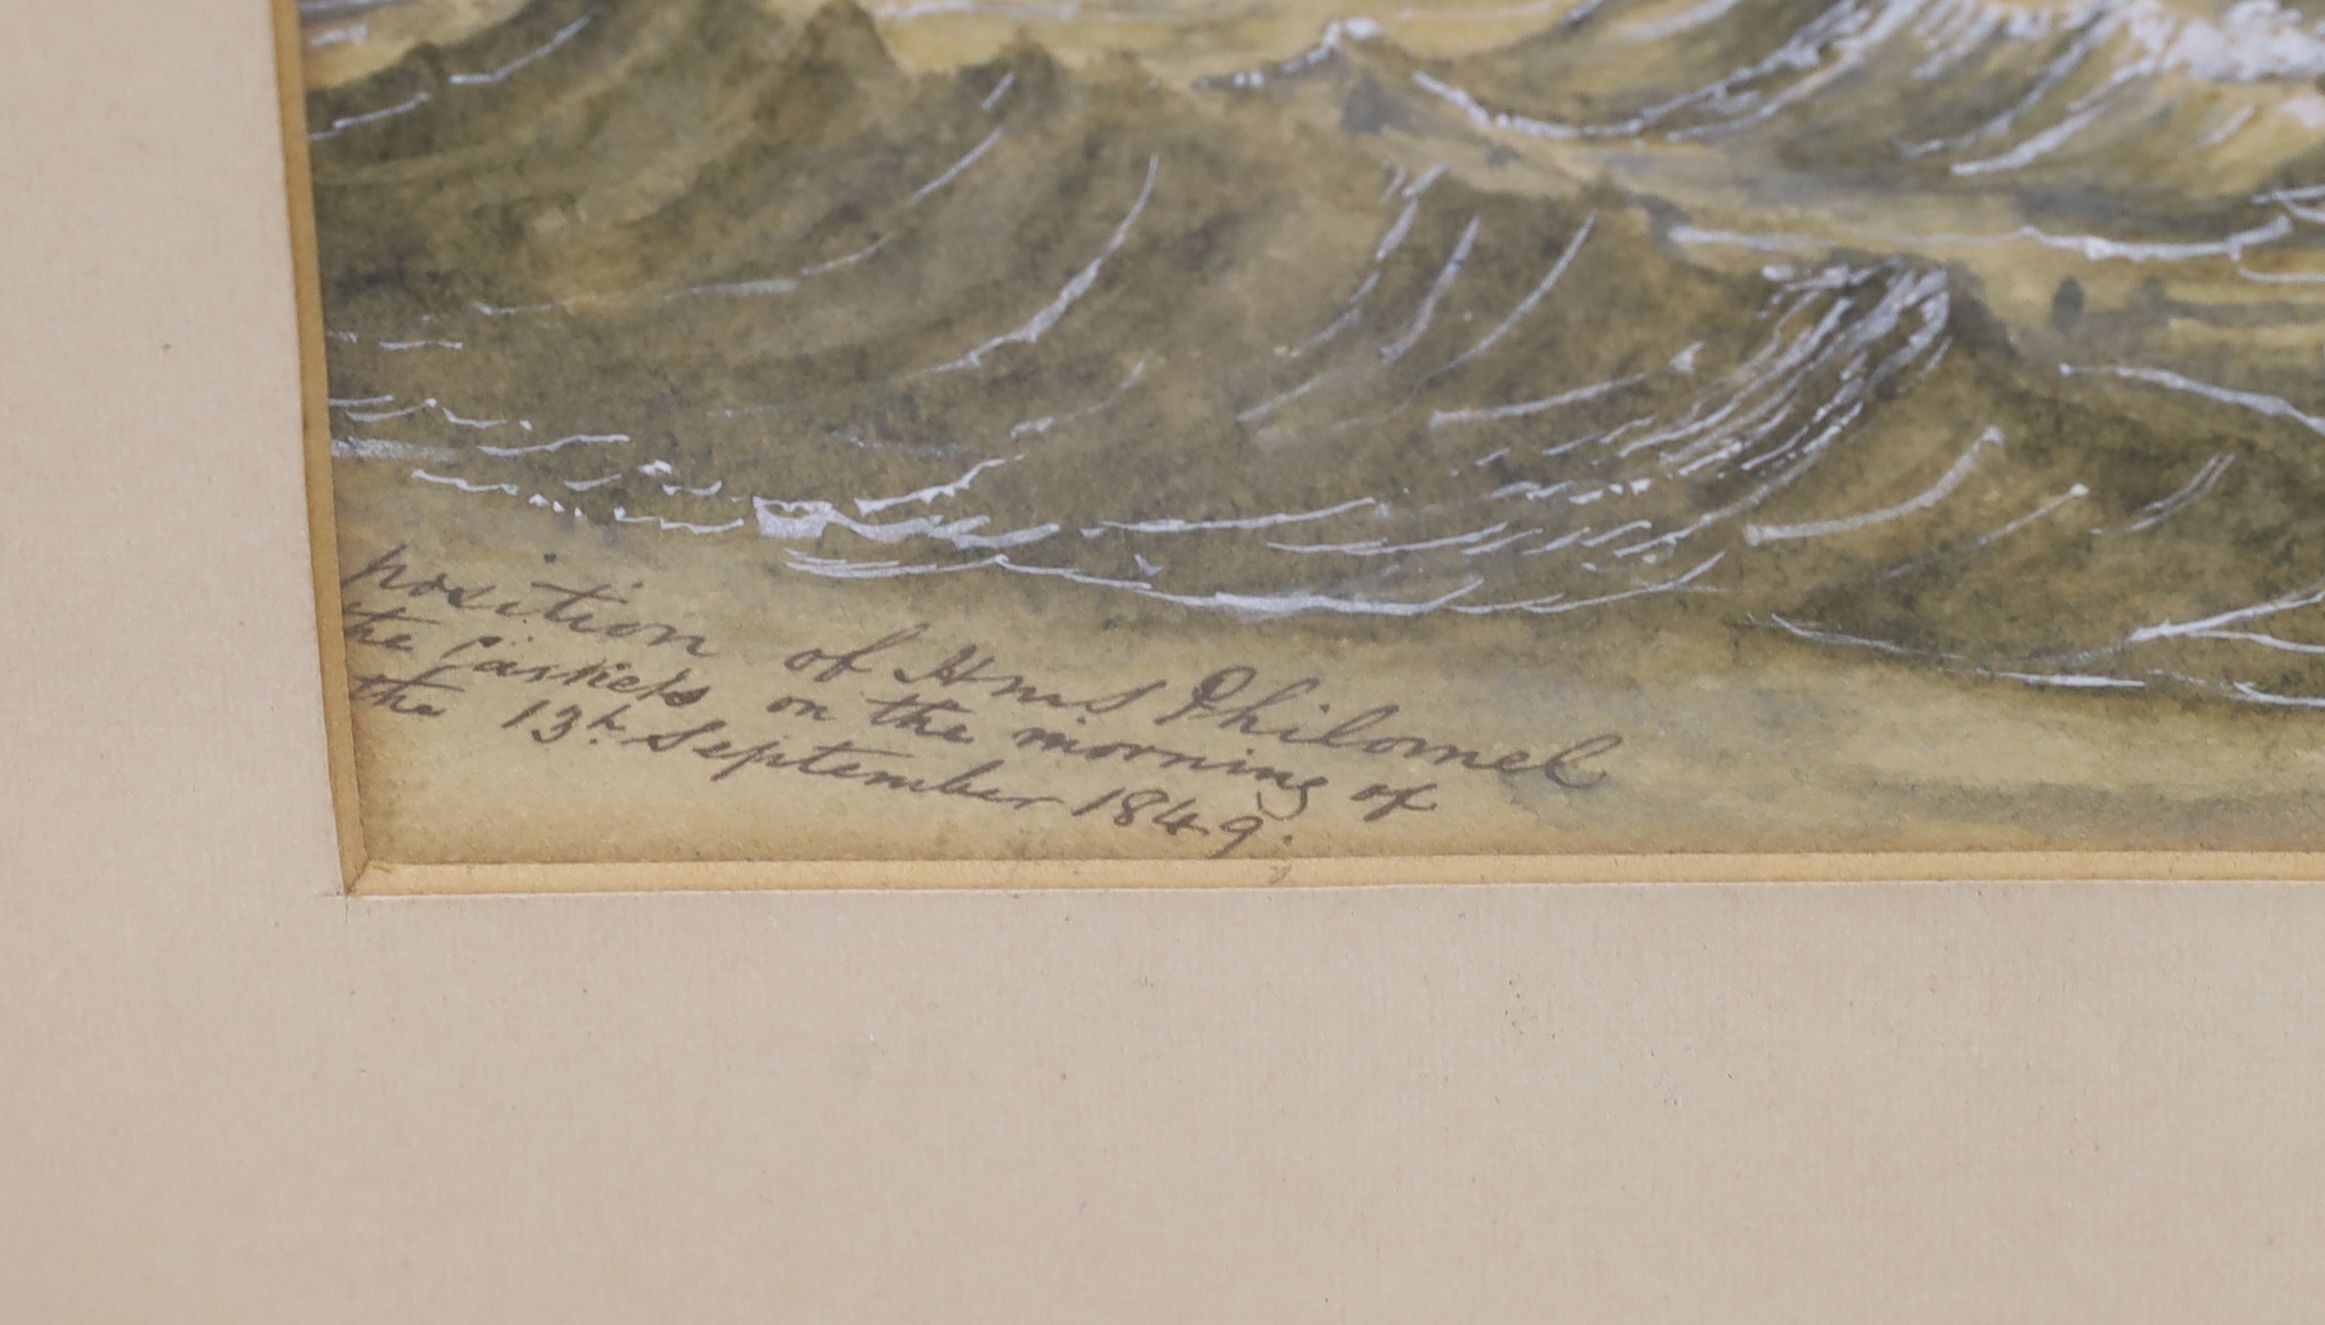 position of Hms Philomel
the Caskets on the morning of
the 13th September 1849.